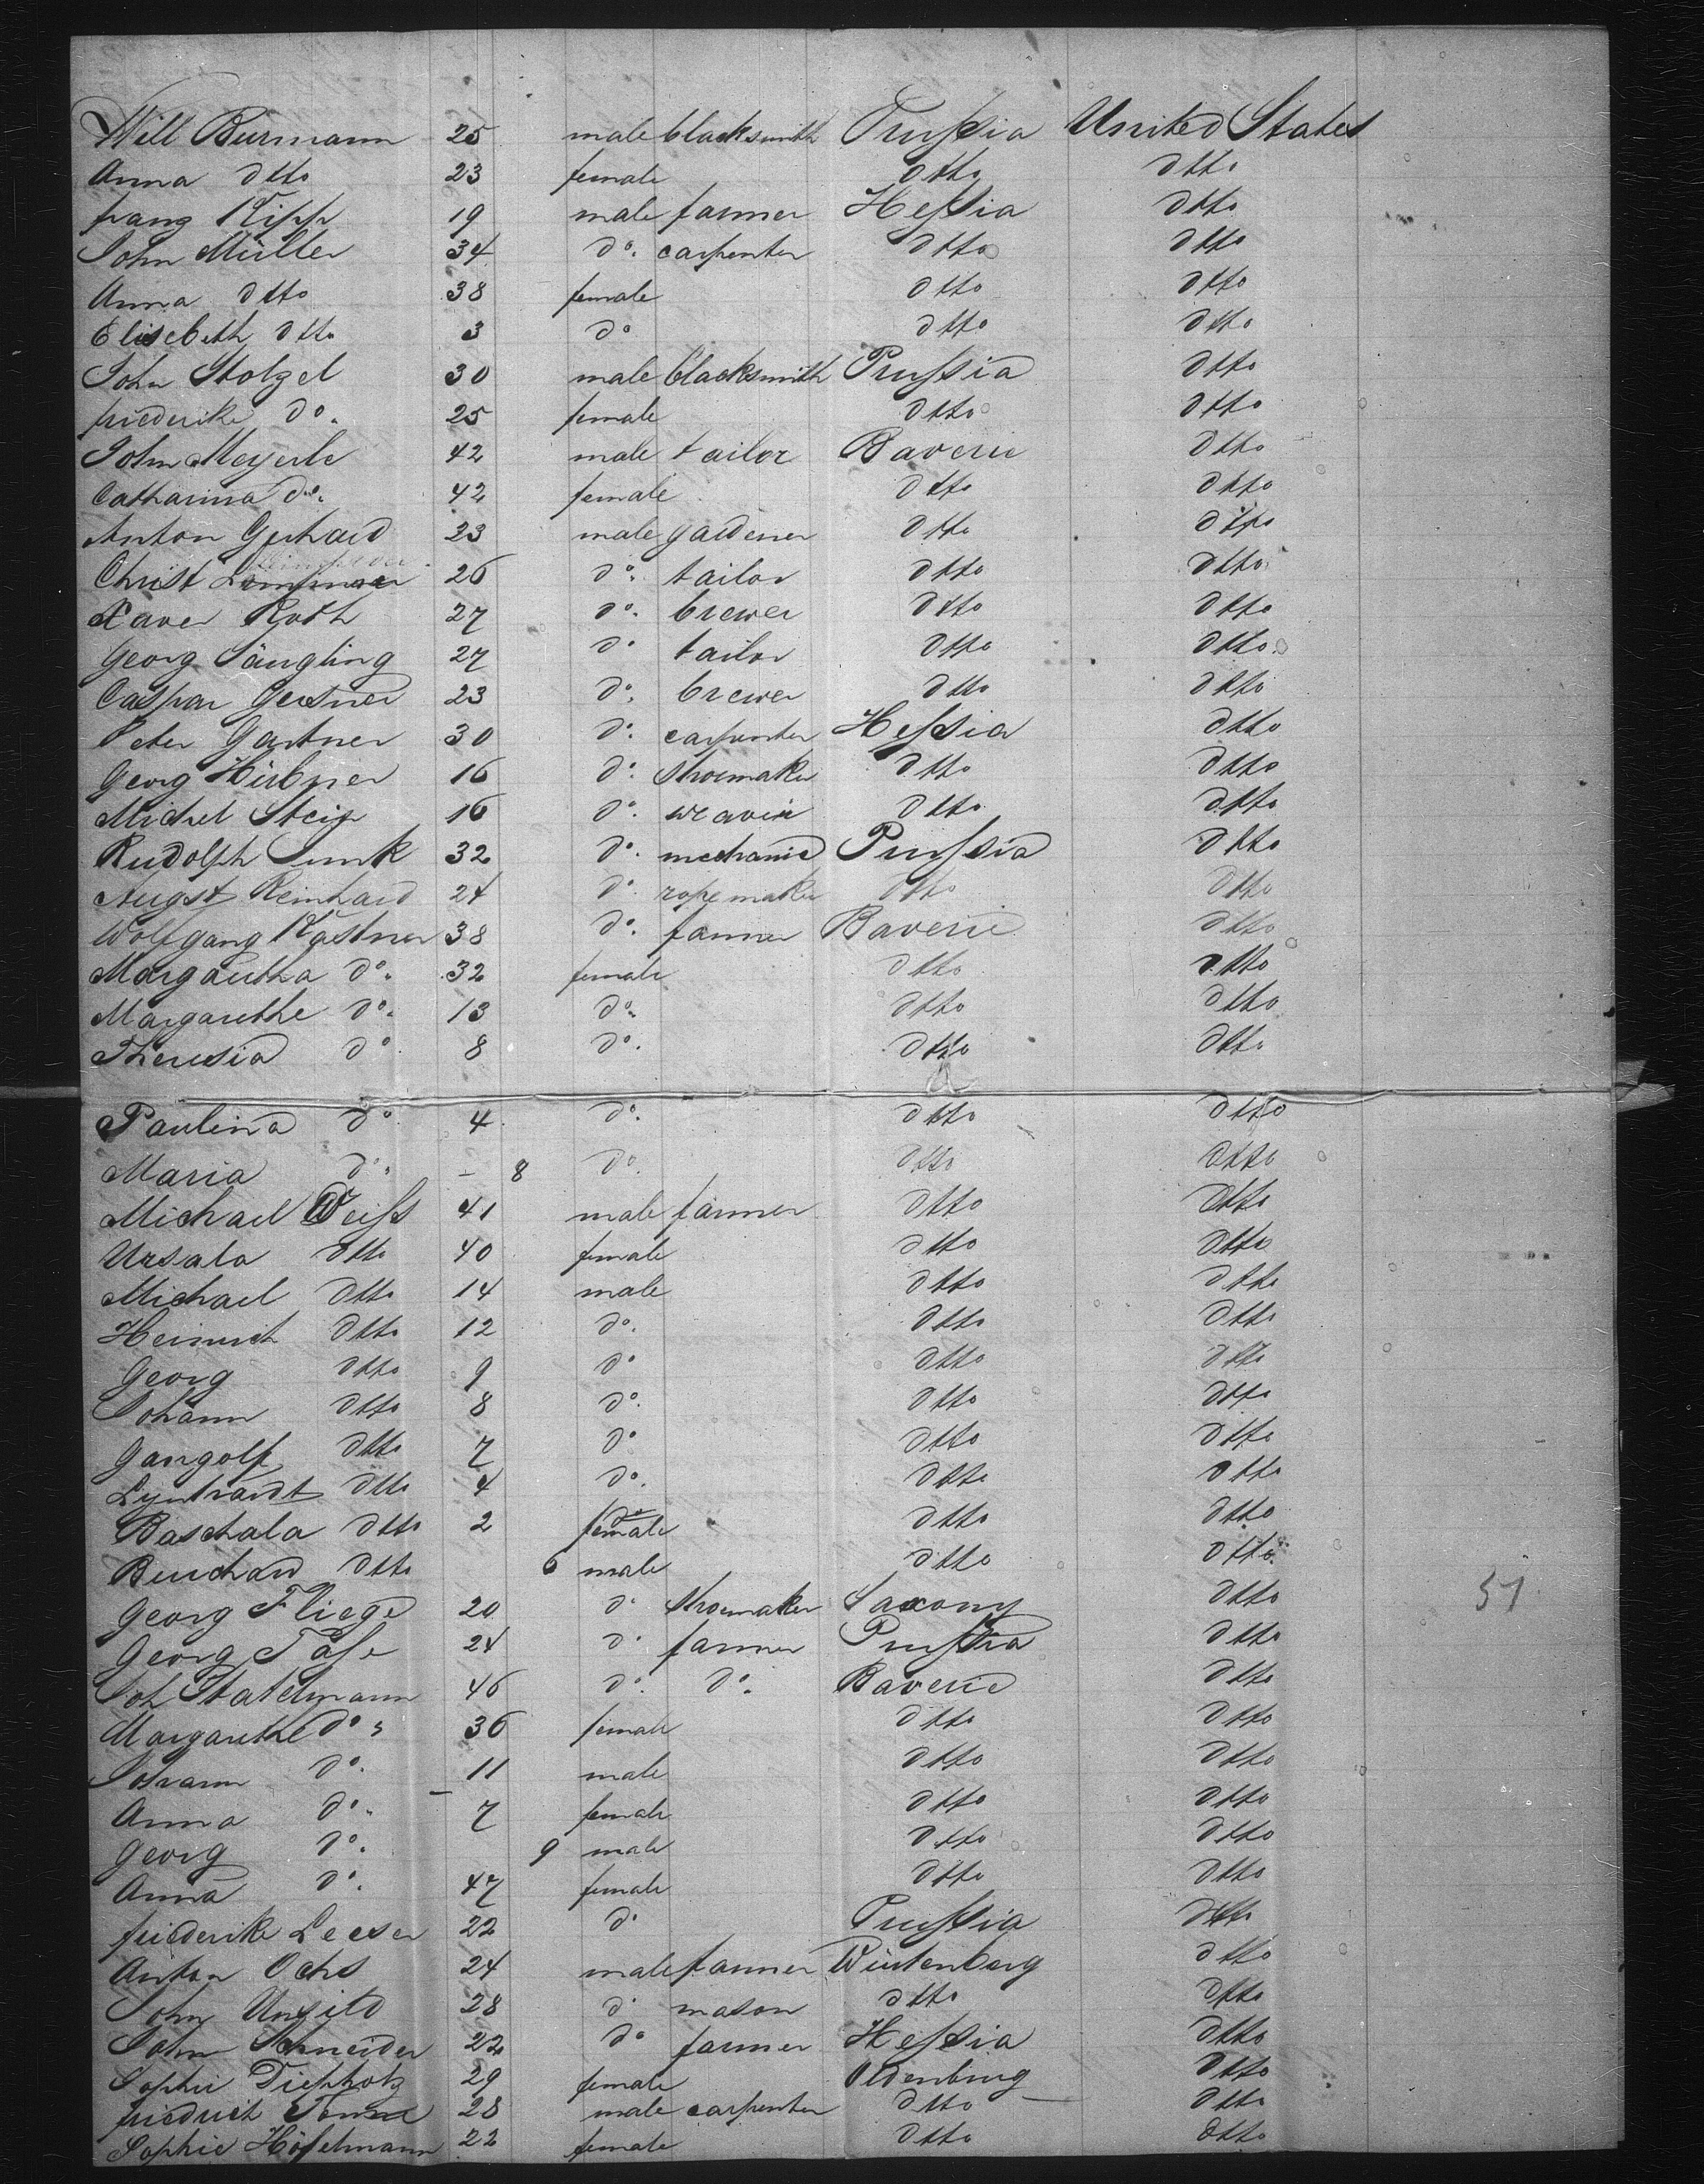 Will Burmann 25 male blacksmith Prussia United States
Anna dtto 23 female dtto dtto
franz Kipp 19 male farmer Hessia dtto
John Müller 34 do. carpenter dtto dtto
Anna dtto 38 female dtto dtto
Elisebeth dtto 3 do dtto dtto
John Stolzel 30 male blacksmith Prussia dtto
friederike do. 25 female dtto dtto
John Meyerle 42 male tailor Baverie dtto
Catharina do. 42 female dtto dtto
Anton Gerhard 23 male gardener dtto dtto
Christ 26 do. tailor dtto dtto
Xaver Roth 27 do. brewer dtto dtto
Georg Säugling 27 do tailor dtto dtto
Caspar Gessner 23 do. brewer dtto dtto
Peter Gartner 30 do. carpenter Hessia dtto
Georg Hübner 16 do. shoemaker dtto dtto
Michel Stein 16 do. dtto dtto
Rudolph 32 do. mechanic Prussia dtto
Augst Reinhard 24 do. ropemaker dtto dtto
Wolfgang Kästner 38 do. farmer Baverie dtto
Margaretha do. 32 female dtto dtto
Margarethe do. 13 do. dtto dtto
Theresia do 8 do. dtto dtto
Paulina do. 4 do. dtto dtto
Maria do. – 8 do. dtto dtto
Michael Weiss 41 male farmer dtto dtto
Ursala dtto 40 female dtto dtto
Michael dtto 14 male dtto dtto
Heinrich dtto 12 do. dtto dtto
Georg dtto 9 do dtto dtto
Johann dtto 8 do. dtto dtto
Gangolf dtto 7 do dtto dtto
dtto 4 do. dtto dtto
Baschala dtto 2 female dtto dtto
Burchard dtto 6 male dtto dtto
Georg Fliege 20 do shoemaker Saxony dtto 51
Georg 24 do farmer Prussia dtto
Joh Statelmann 46 do. do. Baverie dtto
Margarethe do. 36 female dtto dtto
Johann do. 11 male dtto dtto
Anna do. 7 female dtto dtto
Georg do. 9 male dtto dtto
Anna do. 47 female dtto dtto
friederike Leeser 22 do Prussia dtto
Anton Ochs 24 male farmer Würtenberg dtto
John 28 do mason dtto dtto
John Schneider 22 do farmer Hessia dtto
Sophie Diepholz 29 female Oldenburg dtto
friedrich 28 male carpenter dtto dtto
Sophie Höfelmann 22 female dtto dtto